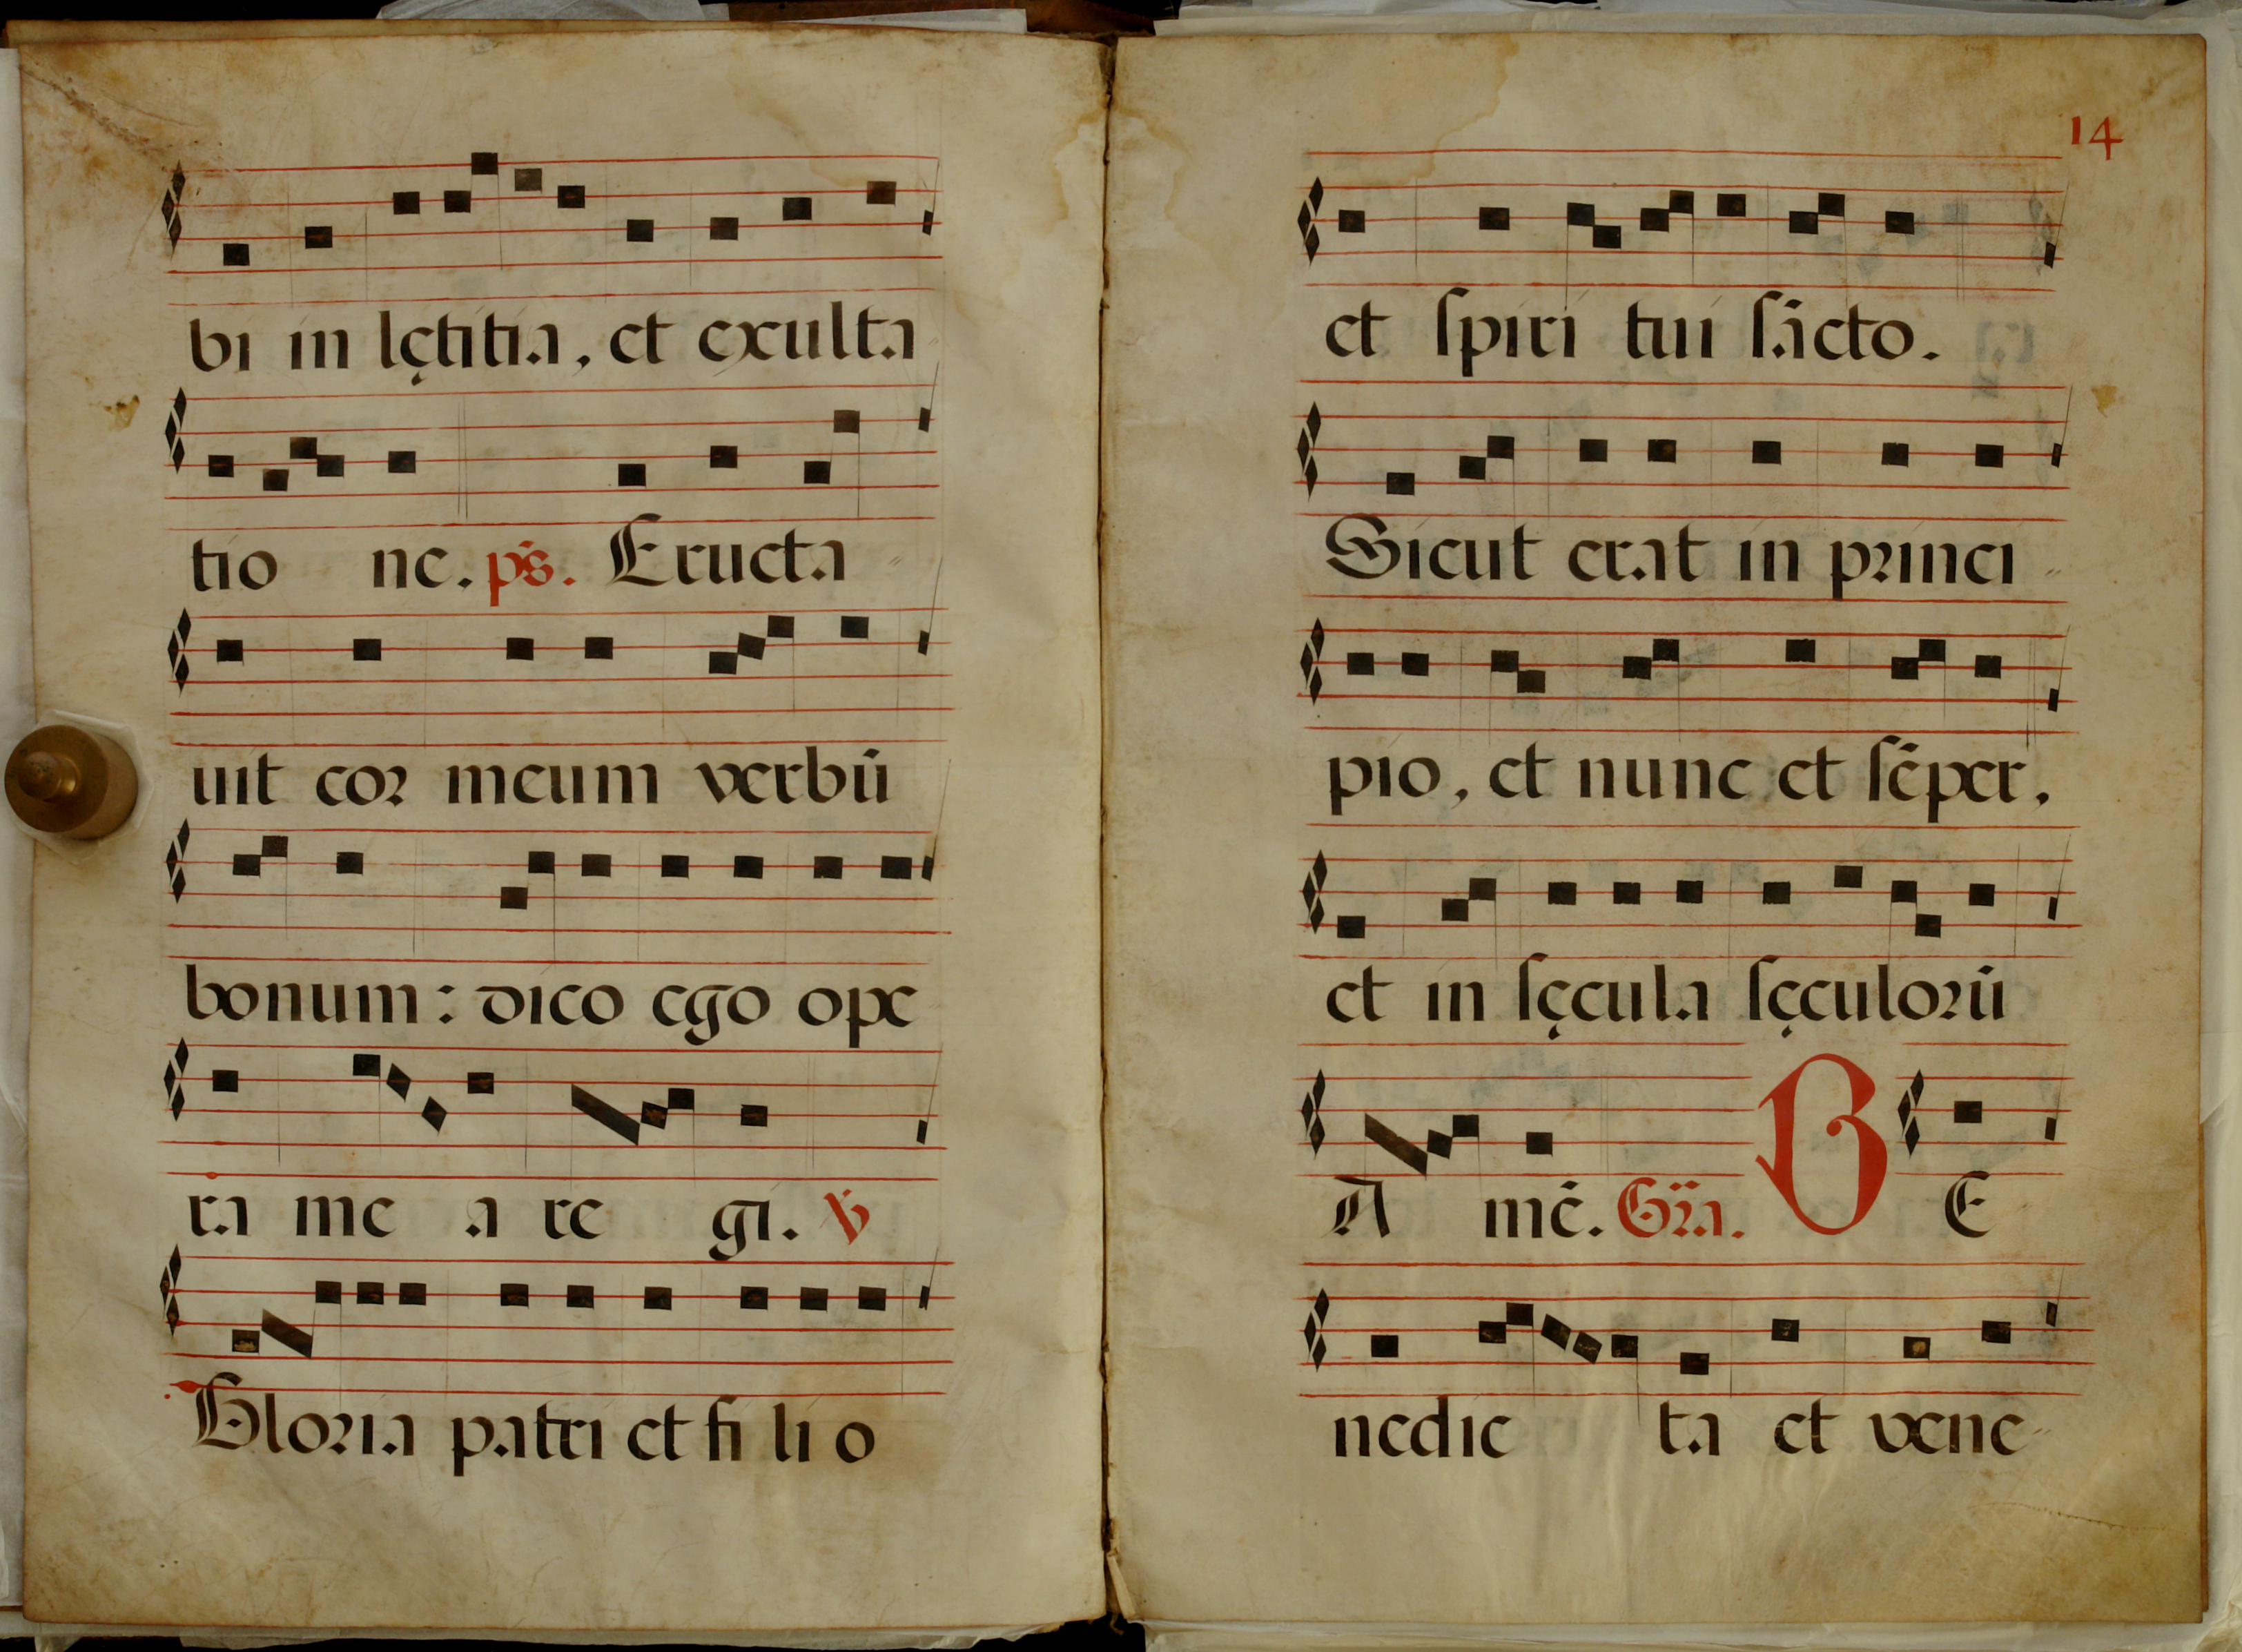 bi in lętitia, et exulta
tio ne. ps̄. Eructa
uit cor meum verbū
bonum: dico ego ope
ra me a re gi. ℣
Gloria patri et fi li o
14
et ſpiri tui ſācto.
Sicut erat in princi
pio, et nunc et ſēper,
et in ſęcula ſęculorū
A mē. Gr̄a. B E
nedic ta et vene